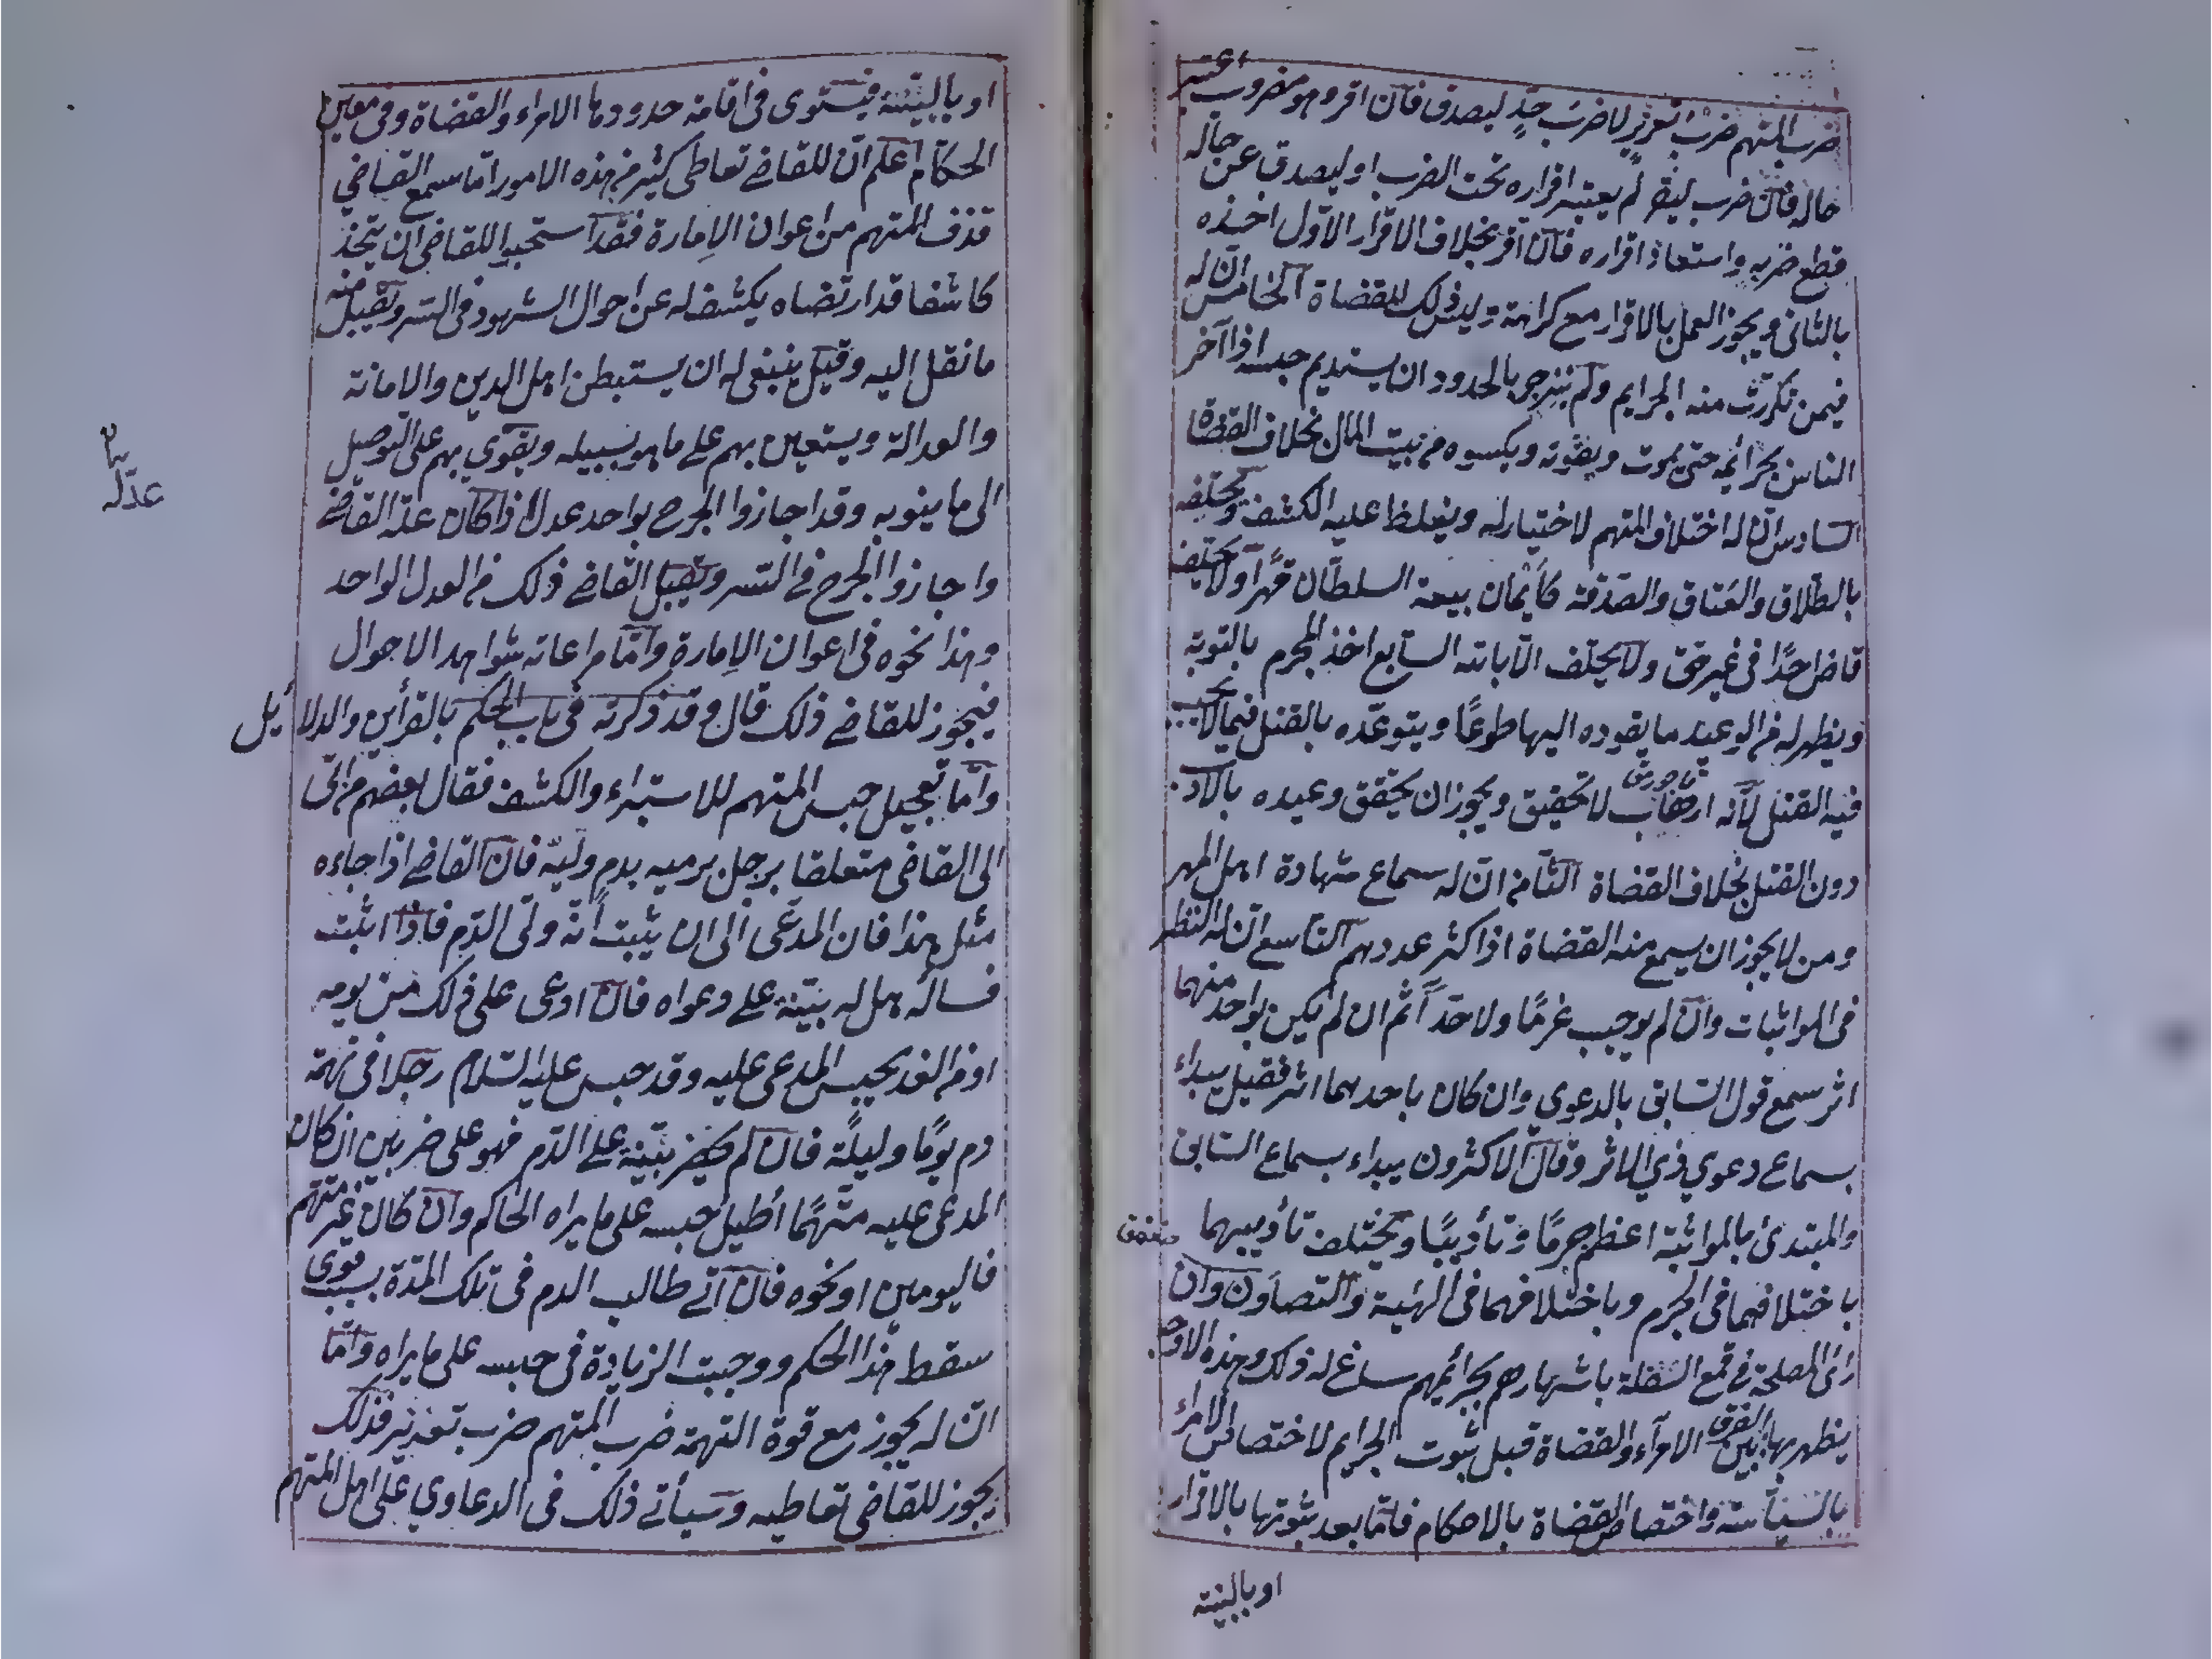 ضرب المتهم ضرب تعزير لا ضرب حدٍ ليصدق فان اقر وهو مضروب اعتبر
حاله فان ضرب ليقر لم يعتبر اقراره تحت الضرب او ليصدق عن حاله
قطع ضربه واستعاذ اقراره فان اقر بخلاف الاقرار الاول اخذه
بالثانى ويجوز العمل بالاقرار مع كراهة وليس ذلك للقضاة الخامس ان له
فيمن تكررت منه الجرايم ولم ينزجر بالحدود ان يستديم حبسه اذا آخر
الناس بجرائمه حتى يموت ويقوته ويكسوه من بيت المال بخلاف القضاة
السادس ان له اختلاف المتهم لاختيار له ويغلظ عليه الكشف ويحلفه
بالطلاق والعتاق والصدقة كأيمان بيعة السلطان قهرا ولا يحلف
قاض احدًا فى غير حق ولا يحلف الا بالله السابع اخذ المجرم بالتوبة
ويظهر له من الوعيد ما يقوده اليها طوعًا ويتوعده بالقتل فيما لا يجب
فيه القتل لانه ارهاب لا تحقيق ويجوز ان يحقق وعيده بالادب
دون القتل بخلاف القضاة الثامن ان له سماع شهادة اهل المهر
ومن لا يجوز ان يسمع منه القضاة اذا كثر عددهم التاسع ان له النظر
فى المواثبات وان لم يوجب غرمًا ولا حدًا ثم ان لم يكن بواحد منهما
اثر سمع قول السابق بالدعوي وان كان باحدهما اثر فقيل يبداء
بسماع دعوي ذي الاثر وقال الاكثرون يبداء بسماع السابق
والمبتدئ بالمواثبة اعظم جرمًا وتأديبًا ويختلف تأديبهما
باختلافهما فى الجرم وباختلافهما فى الهيبة والتصاون وان
رائ المصلحة في قمع السفلة باشهارهم بجرائمهم ساغ له ذلك وهذه الاوجه
يظهر بها الفرق بين الامرآء والقضاة قبل ثبوت الجرايم لاختصاص الامراء
بالسياسة واختصاص القضاة بالاحكام فاما بعد ثبوتها بالاقرار
او بالبينة
او بالبينة فيستوى فى اقامة حدودها الامراء والقضاة وفى معين
الحكام اعلم ان للقاضي تعاطى كثير من هذه الامور اما سمع القاضي
قذف المتهم من اعوان الامارة فقد استحبوا للقاضى ان يتخذ
كاشفا قد ارتضاه يكشف له عن احوال الشهود فى السر ويقبل منه
ما نقل اليه وقيل ينبغى له ان يستبطن اهل الدين والامانة
والعدالة ويستعين بهم على ما هو بسبيله ويقوي بهم على التوصيل
الى ما ينوبه وقد اجازوا الجرح بواحد عدل اذا كان عدله القاضي
عدله
واجازوا الجرح في السر ويقبل القاضي ذلك من العدل الواحد
وهذا نحوه فى اعوان الامارة واما مراعاته شواهد الاحوال
فيجوز للقاضي ذلك قال وقد ذكرته فى باب الحكم بالقرأين والدلائل
واما تعجيل حبس المتهم للاستبراء والكشف فقال بعضهم من اتى
الى القاضى متعلقا برجل يرميه بدم وليه فان القاضي اذا جاءه
مثل هذا فان المدعى الى ان يثبت أنه ولى الدم فاذا اثبت
فسأله هل له بينة على دعواه فان ادعى على ذلك من يومه
او من الغد يحبس المدعى عليه وقد حبس عليه السلام رجلا فى تهمة
دم يومًا وليلة فان لم يحضر بينة على الدم فهو على ضربين ان كان
المدعى عليه متهمًا أطيل حبسه على ما يراه الحاكم وان كان غير متهم
فاليومين او نحوه فان آتى طالب الدم فى تلك المدة بسبب قوى
سقط هذا الحكم ووجبت الزيادة فى حبسه على ما يراه واما
ان له يجوز مع قوة التهمة ضرب المتهم ضرب تعزير فذلك
يجوز للقاضى تعاطيه وسيأتي ذلك فى الدعاوي على اهل المتهم